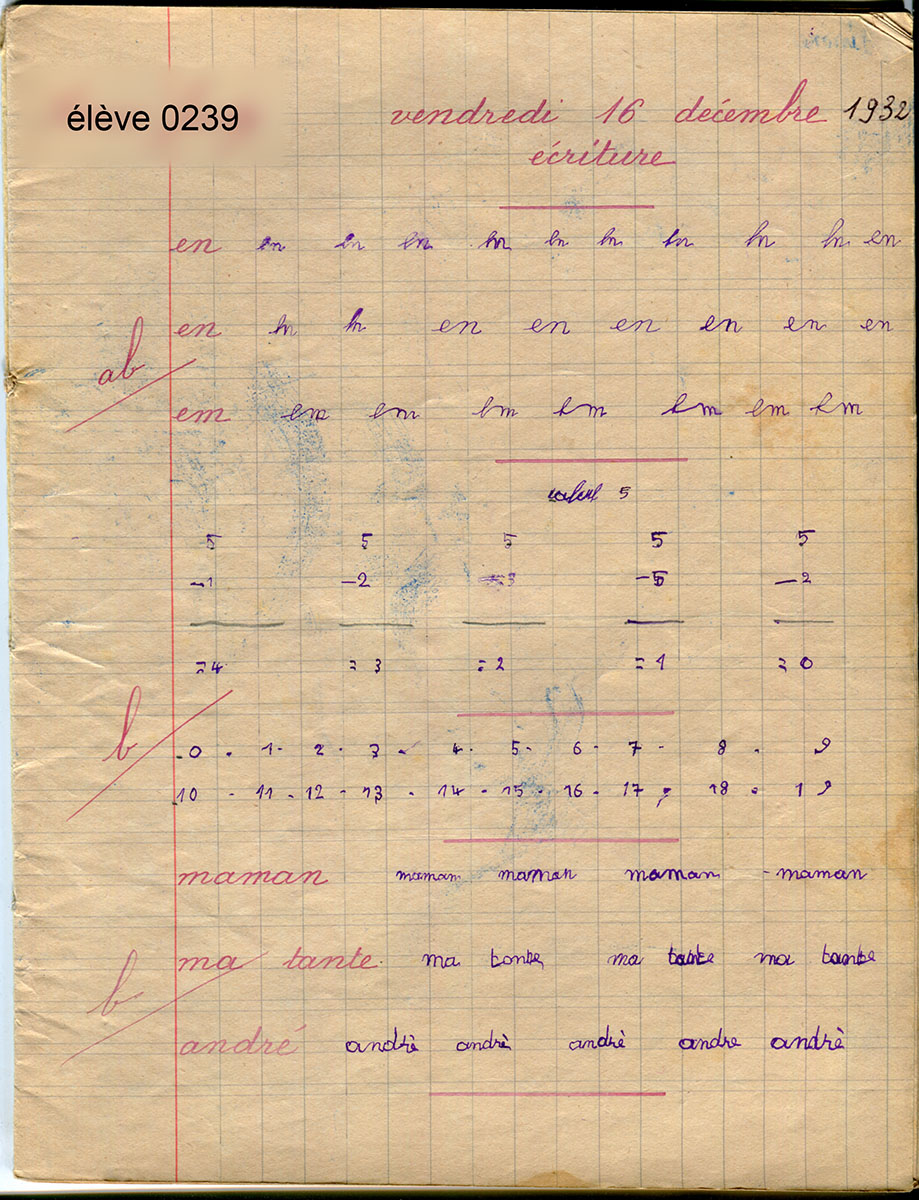 élève 0239
vendredi 16 décembre 1932
écriture
en en en en en en en en en en en
en en en en en en en en en
ab
em em em em em em em em
calcul 5
5 5 5 5 5
-1 -2 -3 -5 -2
=4 =3 =2 =1 =0
b
.0 . 1. 2. 3. 4. 5. 6. 7. 8. 9
10 . 11. 12. 13. 14. 15. 16. 17. 18. 19
maman maman maman maman maman
b
ma tante. ma tante ma tante ma tante
andré andrè andrè andrè andre andrè